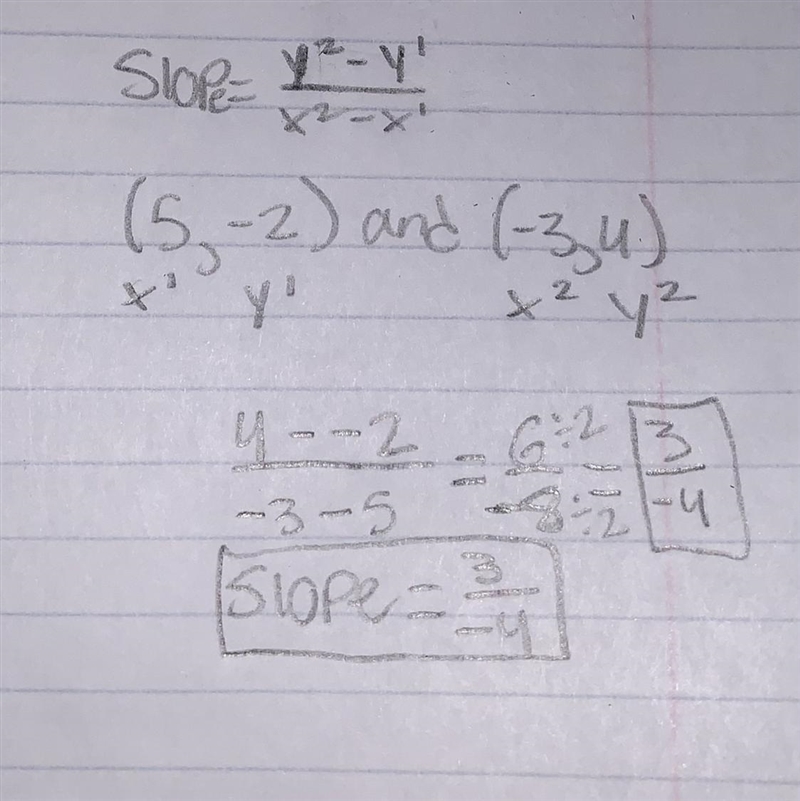 Slope = y² - y¹ / x² - x¹
(5, -2) and (-3, 4)
x¹ y¹ x² y²
4 - -2 / -3 - 5 = 6 ÷2 / -8 ÷2 = 3 / -4
Slope = 3 / -4